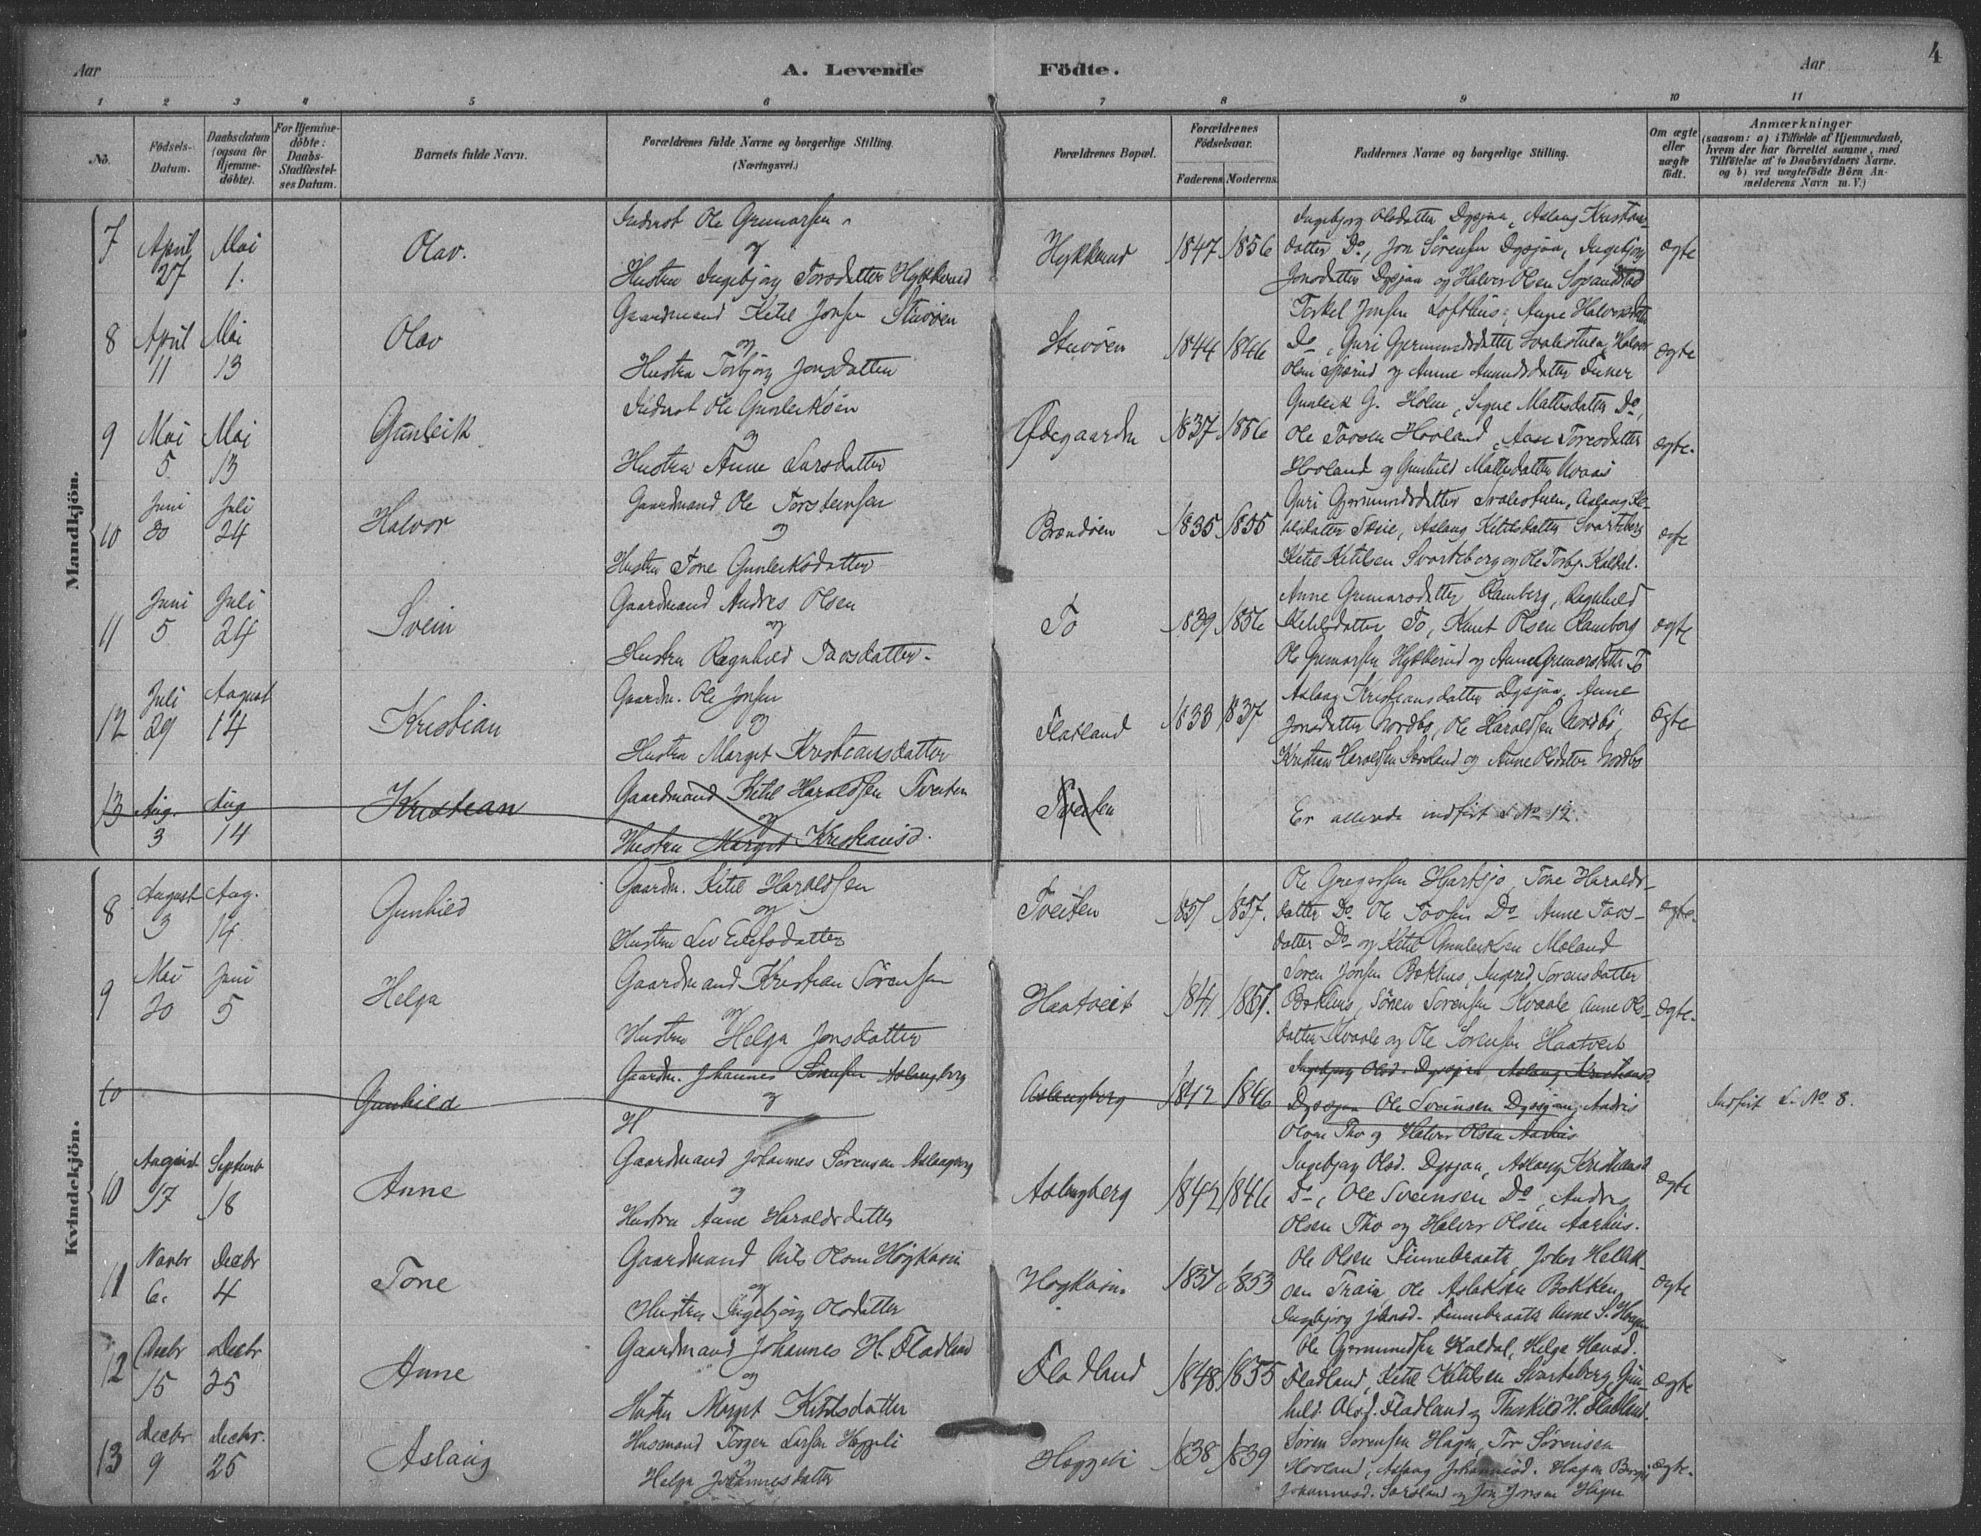 4
Aar
A. Levende
Födte.
Aar
1 2 3 4 5 6 7 8 9 10 11
No.
Födsels-Datum.
Daabsdatum (ogsaa for Hjemme-döbte).
For Hjemme-döbte: Daabs-Stadfæstel-ses Datum.
Barnets fulde Navn.
Forældrenes fulde Navne og borgerlige Stilling.
(Næringsvei.)
Forældrenes Bopæl.
Forældrenes Födselsaar.
Faderens. Moderens.
Faddernes Navne og borgerlige Stilling.
Om ægte eller uægte födt.
Anmærkninger
(saasom: a) i Tilfælde af Hjemmedaab, hvem der har forrettet samme, med Tilföielse af to Daabsvidners Navne. og b) ved uægtefödte Börn An-melderens Navn m. V.)
Mandkjön.
7 April 27 Mai 1. Olav.
Inderst Ole Gunnarsen
og
Hustru Ingebjorg Torsdatter Hykkerud
Hykkerud 1847 1856
Ingebjorg Olsdatter Dysjaa, Aslaug Kristians-
datter Do, Jon Sörensen Dysjaa, Ingebjorg
Jonsdatter Dysjaa og Halvor Olsen
ægte
8 April 11 Mai 13 Olav
Gaardmand Ketil Jonsen Stuvöen
og
Hustru Torbjorg Jonsdatter
Stuvöen 1844 1846
Torkel Jonsen Lofthus, Aagre Halvorsdatter
Do, Guri Gjermundsdatter Svalestuen, Halvor
Olsen og Anne Amundsdatter
ægte
9 Mai 5 Mai 13 Gunleik
Inderst Ole Gunleiksen
og
Hustru Anne Larsdatter
Ödegaarden 1837 1856
Gunleik G. Holm, Signe Mattisdatter Do,
Ole Tovsen Hovland, Aase Toresdatter
Hovland og Gunhild Mattisdatter
ægte.
10 Juni 20 Juli 24 Halvor
Gaardmand Ole Torsteinsen
og
Hustru Tone Gunleiksdatter
Brændöen 1835 1855
Guri Gjermundsdatter Svalestuen, Aslaug Ke-
tilsdatter, Aslaug Ketilsdatter Svarteberg
Ketil Ketilsen Svarteberg og Ole Torbj. Kaldal.
ægte
11 Juni 5 Juli 24 Svein
Gaardmand Andres Olsen
og
Hustru Ragnhild Tovsdatter
To 1839 1856
Anne Gunnarsdatter Ramberg, Ragnhild
Ketilsdatter To, Knut Olsen Ramberg
Ole Gunnarsen Hykkerud og Anne Gunnarsdatter To
ægte
12 Juli 29 August 14 Kristian
Gaardm. Ole Jonsen
og
Hustru Marget Kristiansdatter
Fladland 1833 1837
Aslaug Kristiansdatter Dysjaa, Anne
Jonsdatter Nordbö, Ole Haraldsen Nordbö,
Kristian Haraldsen og Anne Olsdatter Nordbö
ægte
13 Aug. 3 Aug 14 Kristian
Gaardmand Ketil Haraldsen Tveiten
og
Hustru Marget Kristiansd.
Tveiten
Er allerede indfört L No 12.
Kvindekjön.
8 August 3 Aug. 14 Gunhild
Gaardm. Ketil Haraldsen
og
Hustru Liv Eilefsdatter
Tveiten 1851 1857.
Ole Gregersen Hjartsjö, Tone Haralds-
datter Do Ole Tovsen Do Anne Tovs-
datter Do og Ketil Gunleiksen Moland
ægte.
9 Mai 20 Juni 5 Helga
Gaardmand Kristian Sörensen
og
Hustru Helga Jonsdatter
Haatveit 1841 1857.
Sören Jonsen Bokhus, Ingerid Sorensdatter
Bokhus, Sören Sorensen Kvaale, Anne Ols-
datter Kvaale og Ole Sorensen Haatveit
ægte.
10 Gunhild
Gaardm. Johannes Sörensen Aslaugberg
og
H
Aslaugberg 1842 1846
Ingebjorg Olsd. Dysjaa Aslaug Kristiansd.
Dysjaa Ole Sveinsen Dysjaa, Andris
Olsen Tho og Halvor Olsen Aarhus
Indfört L. No 8.
10 August 17 Septemb 18 Anne
Gaardmand Johannes Sörensen Aslaugberg
og
Hustru Anne Haraldsdatter
Aslaugberg 1842 1846
Ingebjorg Olsd. Dysjaa, Aslaug Kristiansd.
Do, Ole Sveinsen Do, Andris
Olsen Tho og Halvor Olsen Aarhus.
ægte
11 Novbr 6. Decbr 4 Tone
Gaardmand Nils Olsen Högkasin
og
Hustru Ingebjorg Olsdatter
Högkasin 1853
Ole Olsen Finnebraaten, John
sen Traen, Ole Aslaksen Bakken,
Ingebjorg Johnsd. Finnebraaten Anne S. Hagen
ægte
12 Decbr 15 Decbr 25 Anne
Gaardmand Johannes H. Fladland
og
Hustru Marget Ketilsdatter
Fladland 1848 1855
Ole Gjermundsen Kaldal, Helga Havsd.
Fladland, Ketil Ketilsen Svarteberg, Gun-
hild Olsd. Fladland og H. Fladland.
ægte
13 Decbr 9 Decbr. 25 Aslaug
Husmand Torger Larsen Heggeli
Helga Johannesdatter
Heggeli 1838 1839
Sören Sorensen Hagen, Tor Sörensen
Hovland, Aslaug Johannesd. Hagen
Johannesd. og Jon Jonsen Hagen
ægte.